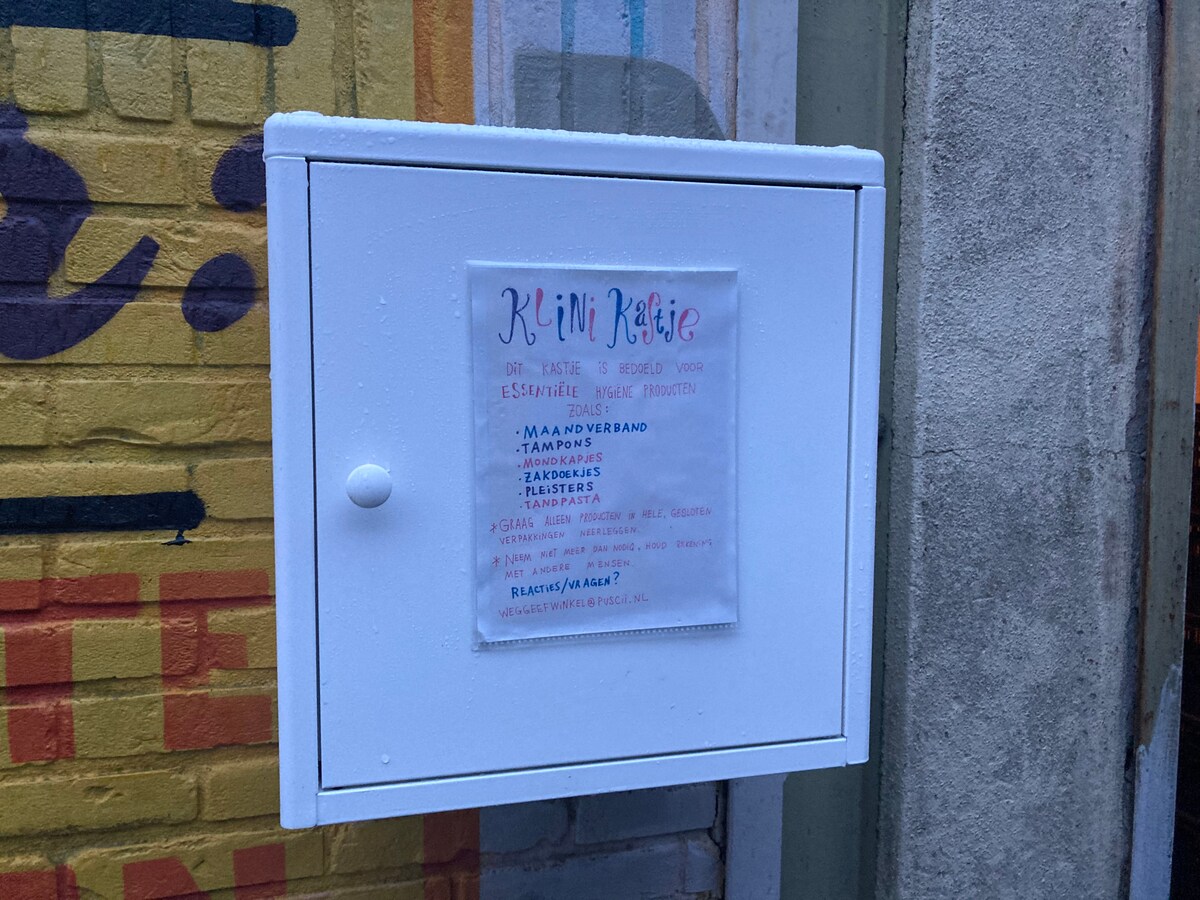 KLINI Kastje
DIT KASTJE IS BEDOELD VOOR
ESSENTIËLE HYGIËNE PRODUCTEN
ZOALS:
· MAANDVERBAND
· TAMPONS
· MONDKAPJES
· ZAKDOEKJES
· PLEISTERS
· TANDPASTA
* GRAAG ALLEEN PRODUCTEN IN HELE, GESLOTEN
VERPAKKINGEN NEERLEGGEN.
* NEEM NIET MEER DAN NODIG, HOUD REKENING
MET ANDERE MENSEN.
REACTIES/VRAGEN?
WEGGEEFWINKEL@PUSCII.NL
TE